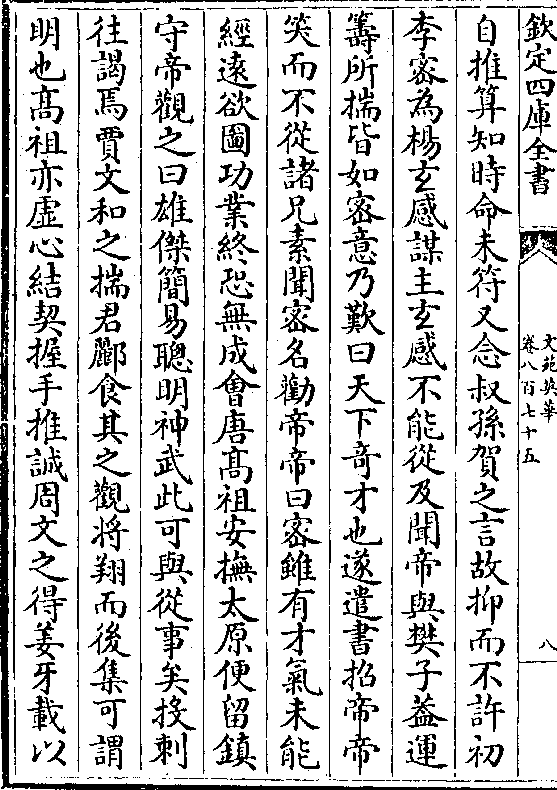 欽定四庫全書
文苑英華
卷八百七十五
八
自推算知時命未符又念叔孫賀之言故抑而不許初
李密為楊玄感謀主玄感不能從及聞帝與樊子葢運
籌所揣皆如密意乃歎曰天下奇才也遂遣書招帝帝
笑而不從諸兄素聞密名勸帝帝曰密雖有才氣未能
經遠欲圖功業終恐無成會唐髙祖安撫太原便留鎮
守帝觀之曰雄傑簡易聰明神武此可與從事矣投刺
往謁焉賈文和之揣君酈食其之觀将翔而後集可謂
明也髙祖亦虚心結契握手推誠周文之得姜牙載以